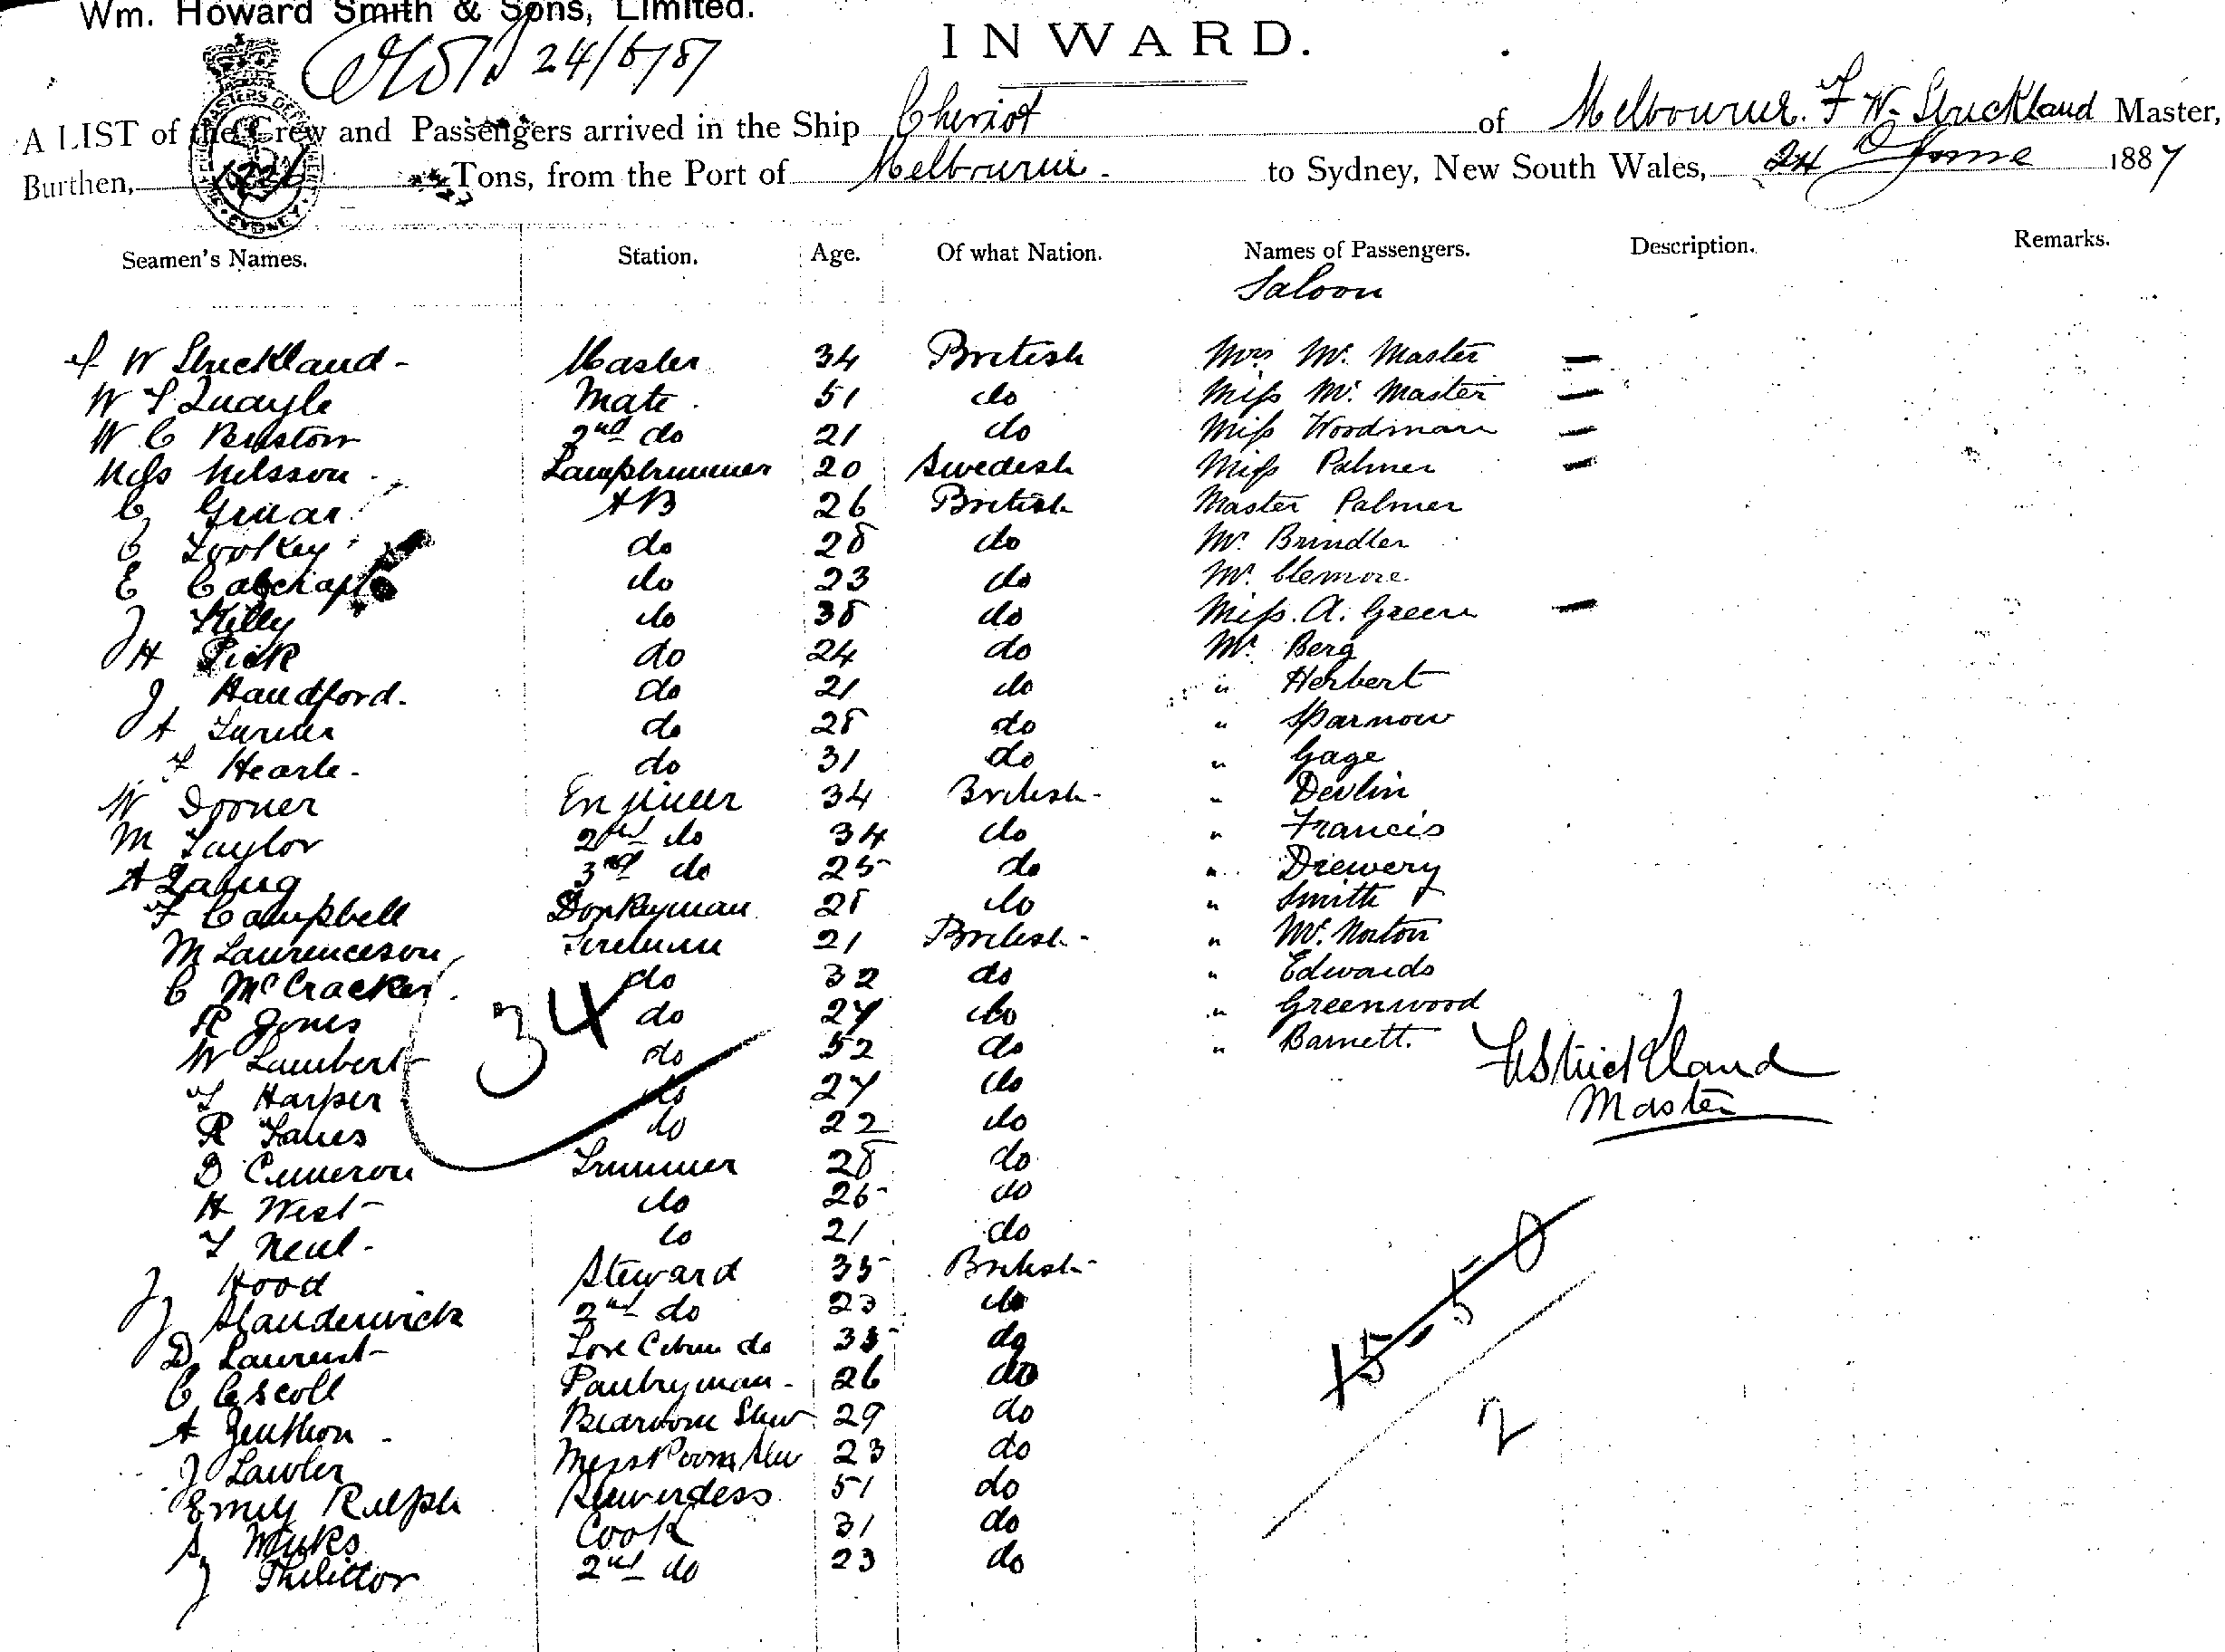 Wm. Howard Smith & Sons, Limited.
24/6/87
INWARD.
A LIST of the Crew and Passengers arrived in the Ship Cheviot of Melbourne. F W. Strickland Master,
Burthen, Tons, from the Port of Melbourne. to Sydney, New South Wales, 24 June 1887
Seamen's Names. Station. Age. Of what Nation. Names of Passengers. Description. Remarks.
Saloon
F W Strickland - Master 34 British Mrs Mc Master —
W T Quayle Mate. 51 do Miss Mc Master —
W C Bristow 2nd do 21 do Miss Woodman —
Nils Nilsson Lamptrimmer 20 Swedish Miss Palmer —
C AB 26 British Master Palmer
C Tookey do 28 do Mr. Brindler
E do 23 do Mr. Clemore.
J Kelly do 38 do Miss. A. Green —
H Pick do 24 do Mr. Berg
J Handford. do 21 do " Herbert
A Turner do 28 do " Sparrow
F Hearle. do 31 do " Gage
W Dooner Engineer 34 British " Devlin
M Taylor 2nd do 34 do " Francis
A Laing 3rd do 25 do " Drewery
F Campbell Donkeyman 28 do " Smith
M Laurenceson Fireman 21 British " Mc. Norton
C McCracken. do 32 do " Edwards
R Jones do 27 do " Greenwood
W Lambert do 52 do " Barnett.
T Harper do 27 do
R do 22 do
D Cameron Trimmer 28 do
H West do 26 do
T Neal. do 21 do
J Hood Steward 35 British
J Standerwick 2nd do 23 do
D Laurent Fore Cabin do 35 do
C Pantryman 26 do
A Bedroom Stew 29 do
J Lawler Mess Room Stew 23 do
Emily Ralph Stewardess 51 do
S Cook 31 do
J 2nd do 23 do
34
F W Strickland
Master
15 - 5 - 0
2